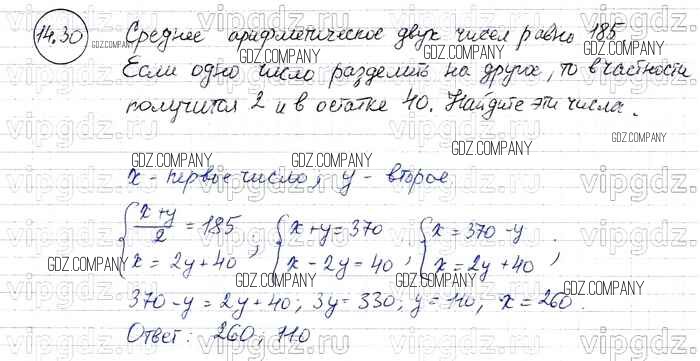 14.30 Среднее арифметическое двух чисел равно 185
Если одно число разделить на другое, то в частности
получится 2 и в остатке 40. Найдите эти числа.
x - первое число, y - второе
{ (x+y)/2 = 185 ; { x+y=370 ; { x = 370-y ;
{ x = 2y+40 { x-2y=40 { x=2y+40
370-y=2y+40; 3y=330; y=110, x=260.
Ответ: 260; 110
GDZ.COMPANY
vipgdz.ru